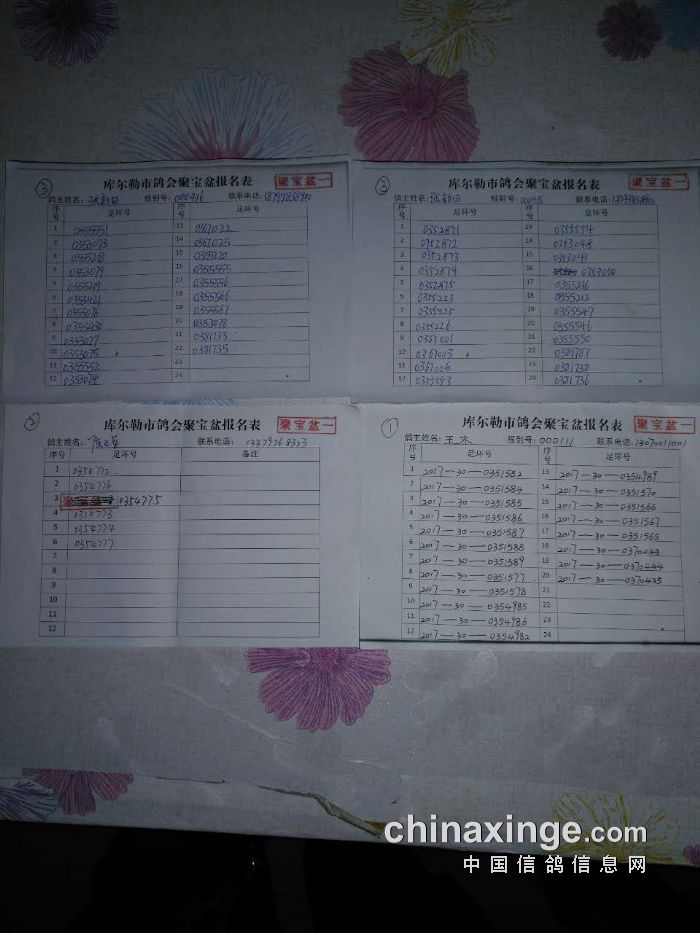 ③ 库尔勒市鸽会聚宝盆报名表 聚宝盆一
鸽主姓名: 报到号: 000416 联系电话:
序号 足环号 序号 足环号
1 0355551 13 0367022
2 0353073 14 0367025
3 0355218 15 0355220
4 0353079 16 0355555
5 0355219 17 0355556
6 18 0355566
7 0353076 19 0355567
8 20 0353078
9 0353077 21 0381733
10 0353075 22 0381735
11 0355552 23
12 0353074 24
② 库尔勒市鸽会聚宝盆报名表 聚宝盆一
鸽主姓名: 报到号: 联系电话:
序号 足环号 序号 足环号
1 0352871 13 0355554
2 0352872 14 0363048
3 0352873 15 0363041
4 0352874 16 0363050
5 0352875 17 0355216
6 0355223 18 0355212
7 0355225 19 0355547
8 0355226 20 0355546
9 0367001 21 0355550
10 0367003 22 0381737
11 0367006 23 0381738
12 0355553 24 0381736
② 库尔勒市鸽会聚宝盆报名表 聚宝盆一
鸽主姓名: 联系电话:
序号 足环号 备注
1 0354772
2 0354776
3 0354775
4 0354773
5 0354774
6 0354777
7
8
9
10
11
12
① 库尔勒市鸽会聚宝盆报名表 聚宝盆一
鸽主姓名: 王木 报到号: 000111 联系电话: 13070011001
序号 足环号 序号 足环号
1 2017-30-0351582 13 2017-30-0354989
2 2017-30-0351584 14 2017-30-0351570
3 2017-30-0351585 15 2017-30-0351566
4 2017-30-0351586 16 2017-30-0351567
5 2017-30-0351587 17 2017-30-0351565
6 2017-30-0351588 18 2017-30-0370443
7 2017-30-0351589 19 2017-30-0370444
8 2017-30-0351577 20 2017-30-0370435
9 2017-30-0351578 21
10 2017-30-0354985 22
11 2017-30-0354986 23
12 2017-30-0354982 24
chinaxinge.com
中国信鸽信息网